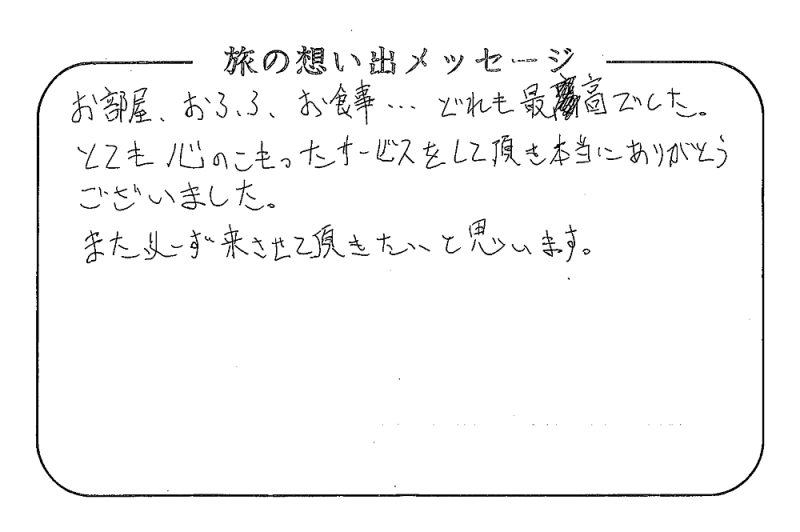 旅の想い出メッセージ
お部屋、おふろ、お食事… どれも最高でした。
とても心のこもったサービスをして頂き本当にありがとう
ございました。
また必ず来させて頂きたいと思います。